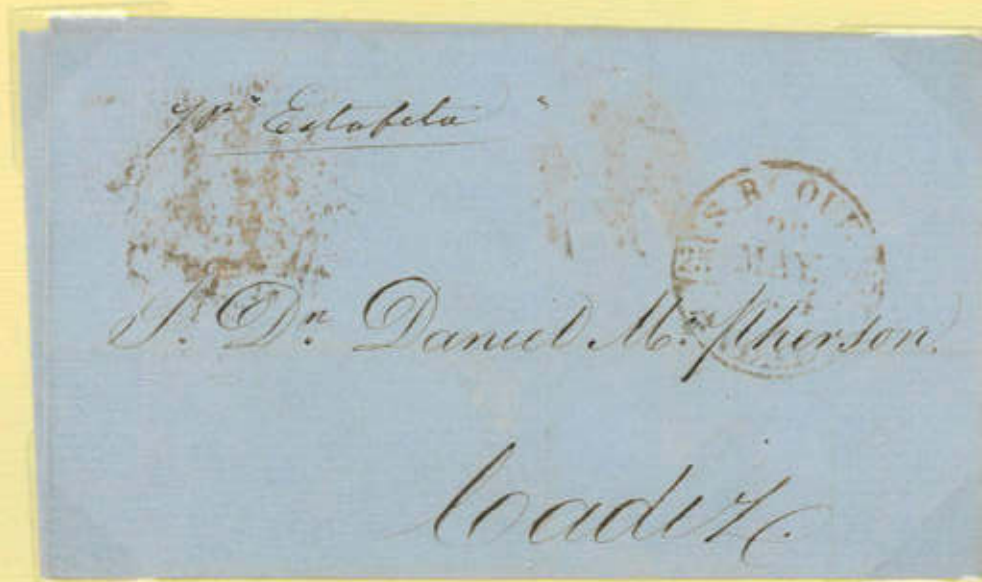 Estafeta
MAY.
S. Dn. Daniel Mc. Pherson.
Cadiz.